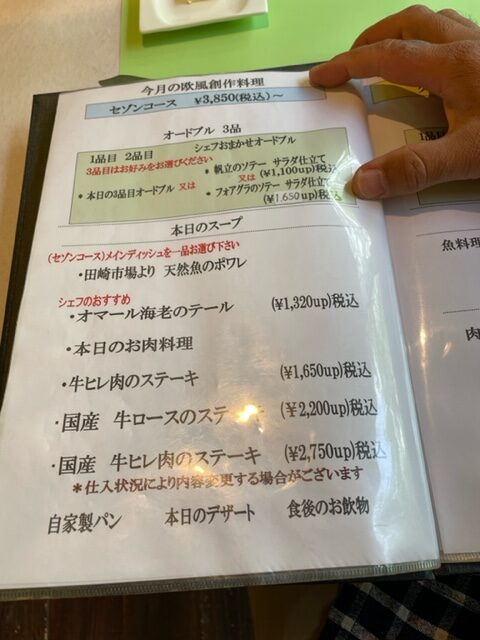 今月の欧風創作料理
セゾンコース ¥3,850(税込)～
オードブル 3品
1品目 2品目 シェフおまかせオードブル
3品目はお好みをお選びください
・帆立のソテー サラダ仕立て
又は (¥1,100up)税込
・本日の3品目オードブル 又は
・フォアグラのソテー サラダ仕立て
(¥1,650up)税込
本日のスープ
(セゾンコース)メインディッシュを一品お選び下さい
・田崎市場より 天然魚のポワレ
シェフのおすすめ
・オマール海老のテール (¥1,320up)税込
・本日のお肉料理
・牛ヒレ肉のステーキ (¥1,650up)税込
・国産 牛ロースのステーキ (¥2,200up)税込
・国産 牛ヒレ肉のステーキ (¥2,750up)税込
＊仕入状況により内容変更する場合がございます
自家製パン 本日のデザート 食後のお飲物
1品目
魚料理
肉